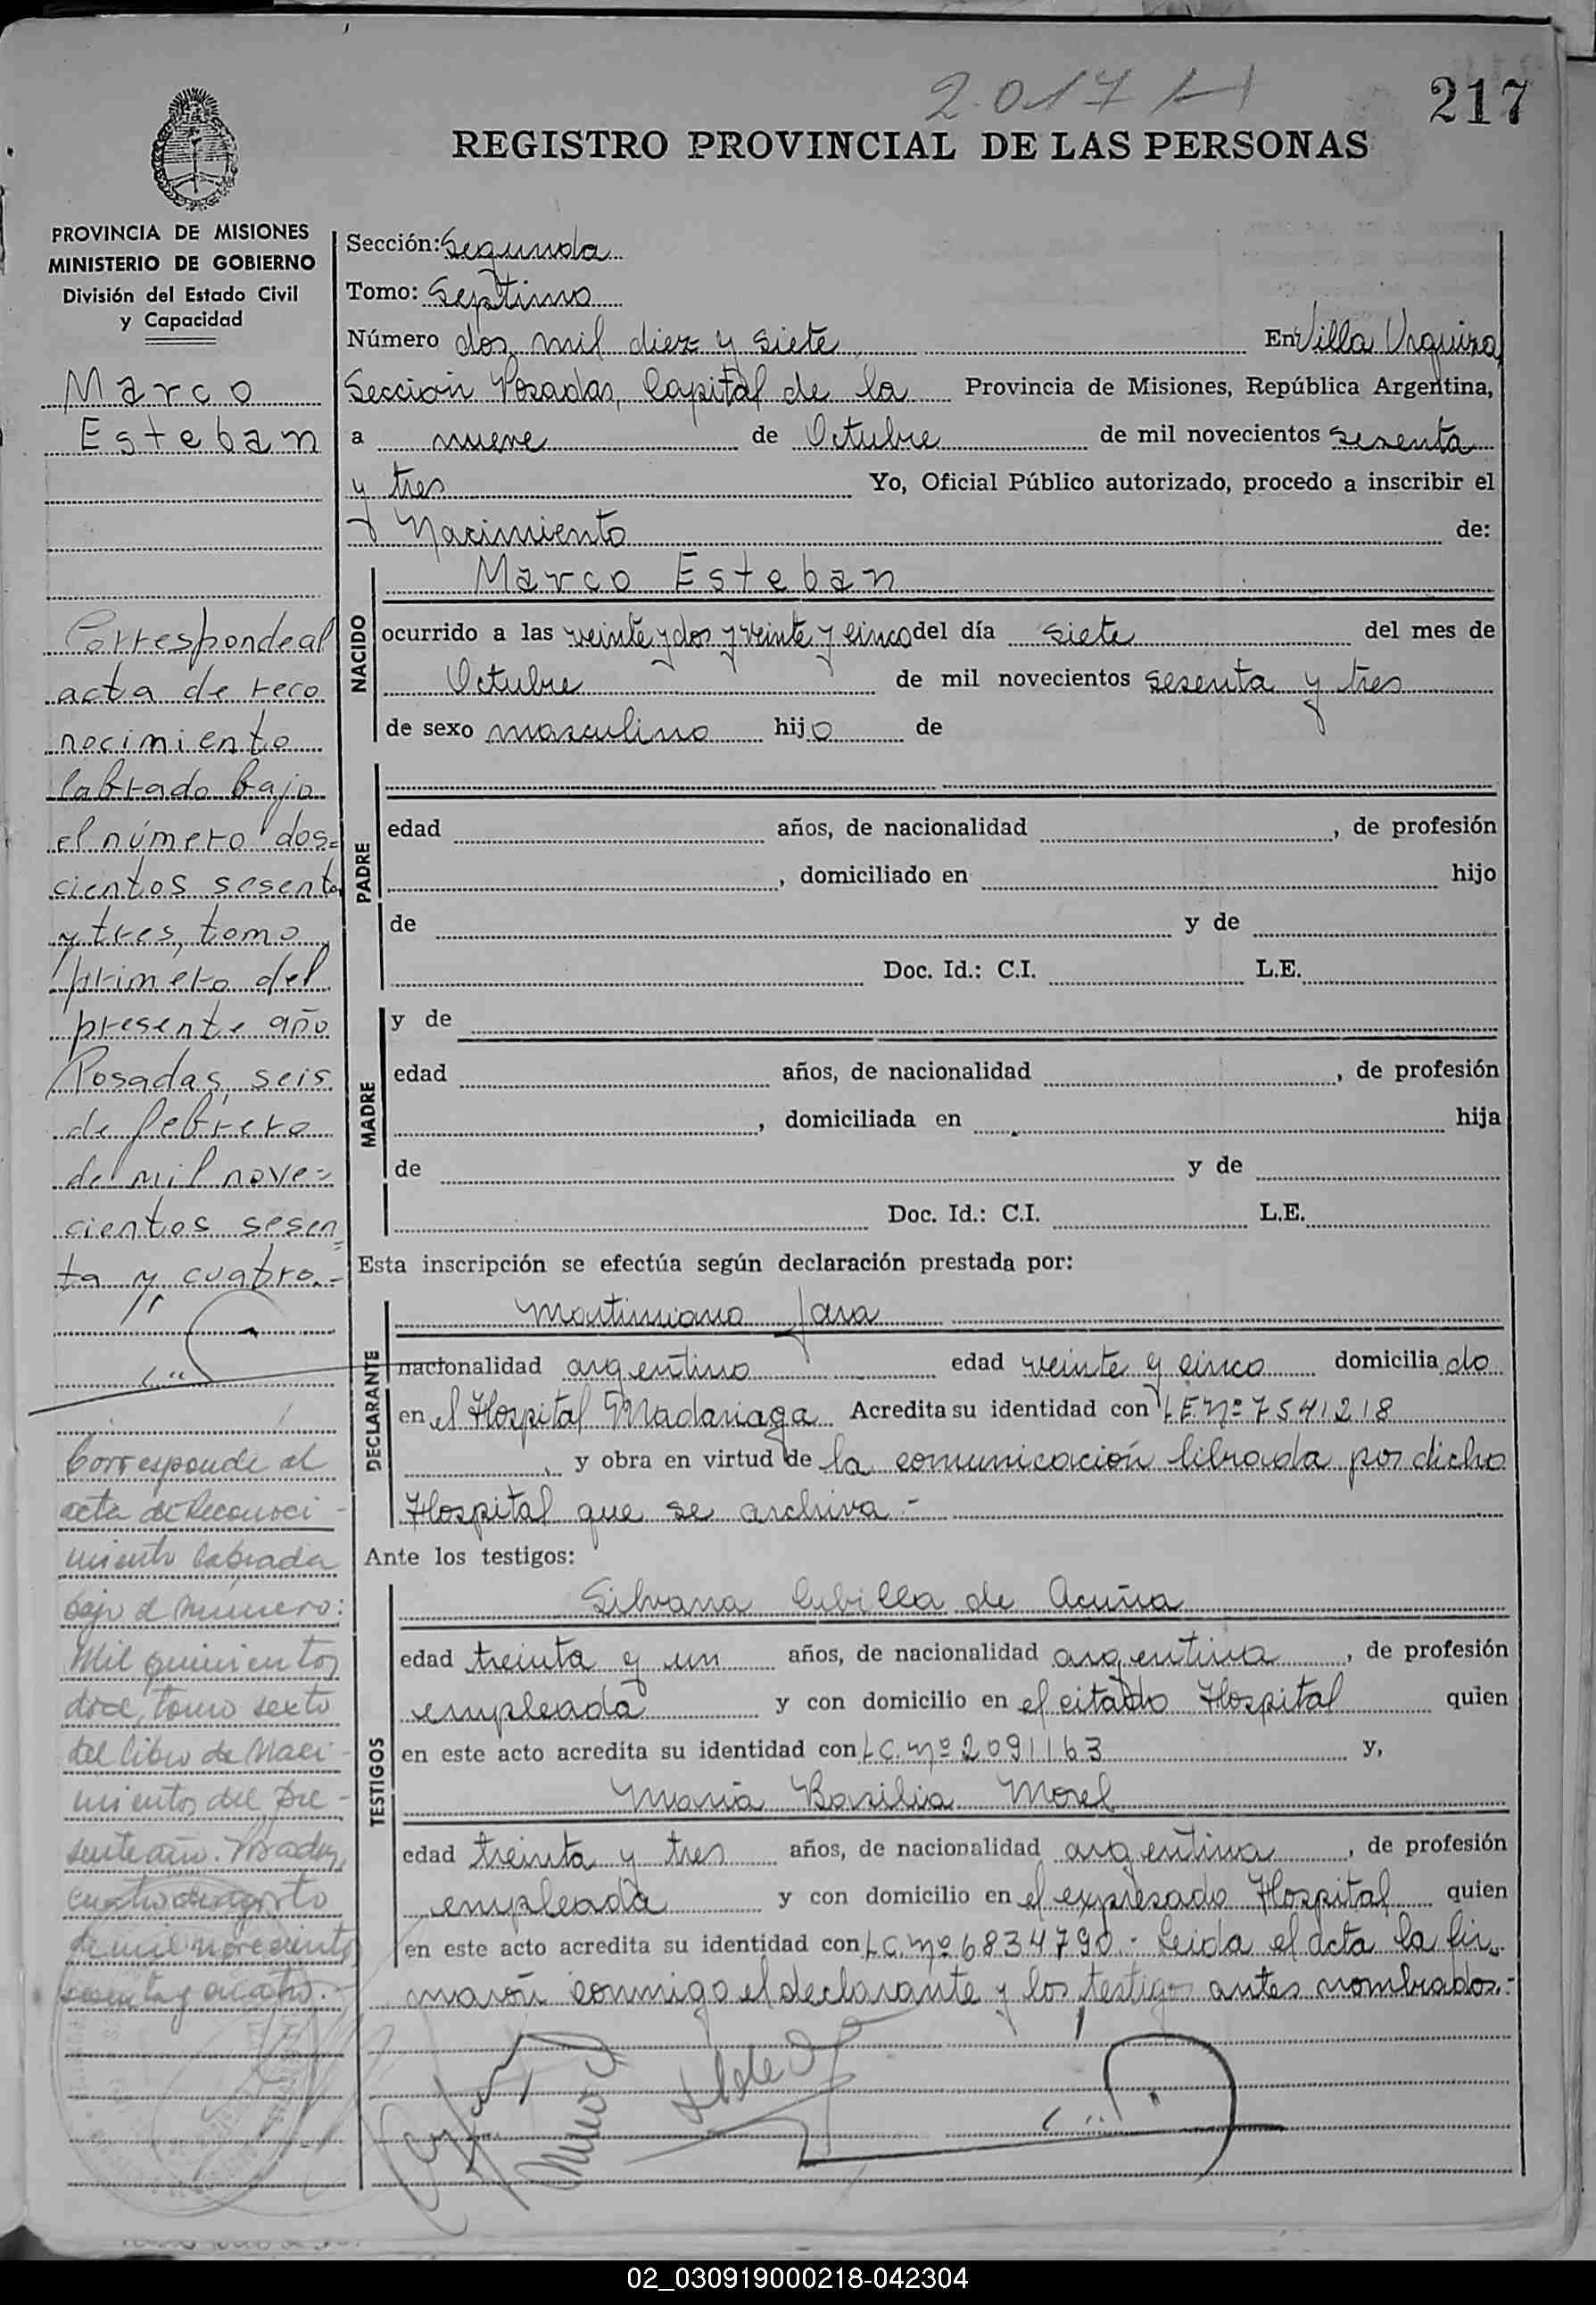 2017
217
REGISTRO PROVINCIAL DE LAS PERSONAS
PROVINCIA DE MISIONES
MINISTERIO DE GOBIERNO
División del Estado Civil
y Capacidad
Marco
Esteban
Correspondeal
acta de reco
nocimiento
labrado bajo
el número dos=
cientos sesenta
y tres, tomo
primero del
presente año
Posadas, seis
de febrero
de mil nove=
cientos sesen=
ta y cuatro.-
Corresponde al
acta de Reconoci-
miento labrada
bajo el número:
Mil quinientos
doce, tomo sexto
del libro de Naci-
mientos del pre-
sente año. Posadas,
cuatro de agosto
de mil novecientos
sesenta y cuatro.-
Sección: Segunda
Tomo: Septimo
Número dos mil diez y siete En Villa Urquiza
Sección Posadas, Capital de la Provincia de Misiones, República Argentina,
a nueve de Octubre de mil novecientos sesenta
y tres Yo, Oficial Público autorizado, procedo a inscribir el
Nacimiento de:
Marco Esteban
NACIDO
ocurrido a las veinte y dos y veinte y cinco del día siete del mes de
Octubre de mil novecientos sesenta y tres
de sexo masculino hijo de
PADRE
edad años, de nacionalidad , de profesión
, domiciliado en hijo
de y de
Doc. Id.: C.I. L.E.
MADRE
y de
edad años, de nacionalidad , de profesión
, domiciliada en hija
de y de
Doc. Id.: C.I. L.E.
Esta inscripción se efectúa según declaración prestada por:
DECLARANTE
Martimiano Jara
nacionalidad argentino edad veinte y cinco domiciliado
en el Hospital Madariaga Acredita su identidad con L.E. Nº 7541218
y obra en virtud de la comunicación librada por dicho
Hospital que se archiva.-
Ante los testigos:
TESTIGOS
Silvana Cubilla de Acuña
edad treinta y un años, de nacionalidad argentina, de profesión
empleada y con domicilio en el citado Hospital quien
en este acto acredita su identidad con L.C. Nº 2091163 y,
María Basilia Morel
edad treinta y tres años, de nacionalidad argentina, de profesión
empleada y con domicilio en el expresado Hospital quien
en este acto acredita su identidad con L.C. Nº 6834790.- Leida el acta la fir_
maron conmigo el declarante y los testigos antes nombrados.-
02_030919000218-042304